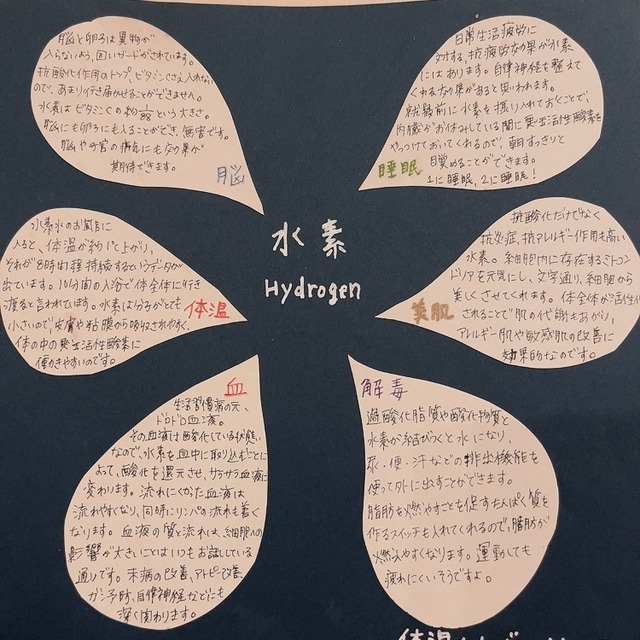 脳と卵子は異物が
入らないよう、固いガードがされています。
抗酸化作用のトップ、ビタミンCさえ入れない
ので、あまり行き届かせることができません。
水素はビタミンCの約1/88という大きさ。
脳にも卵子にも入ることができ、無害です。
脳や子宮の病気にも効果が
期待できます。
脳
日常生活疲労に
対する、抗疲労効果が水素
にはあります。自律神経も整えて
くれる効果があると思われます。
就寝前に水素を摂り入れておくことで、
内臓がお休みしている間に悪玉活性酸素を
やっつけておいてくれるので、朝すっきりと
目覚めることができます。
1に睡眠、2に睡眠!
睡眠
水素
Hydrogen
水素水のお風呂に
入ると、体温が約1℃上がり、
それが8時間程持続するというデータが
出ています。10分間の入浴で体全体に行き
渡ると言われています。水素は分子がとても
小さいので皮膚や粘膜から吸収されやすく、
体の中の悪玉活性酸素に
働きやすいのです。
体温
抗酸化だけでなく
抗炎症、抗アレルギー作用も高い
水素。細胞内に存在するミトコン
ドリアを元気にし、文字通り、細胞から
美しくさせてくれます。体全体が活性化
されることで肌の代謝もあがり、
アレルギー肌や敏感肌の改善に
効果的なのです。
美肌
血
生活習慣病の元、
ドロドロ血液。
その血液は酸化している状態。
なので、水素を血中に取り込むことに
よって、酸化を還元させ、サラサラ血液に
変わります。流れにくかった血液は
流れやすくなり、同時にリンパの流れも良く
なります。血液の質と流れは、細胞への
影響が大きいことはいつもお話している
通りです。未病の改善、アトピー改善、
ガン予防、自律神経などにも
深く関わります。
解毒
過酸化脂質や酸化物質と
水素が結びつくと水になり、
尿・便・汗などの排出機能を
使って外に出すことができます。
脂肪を燃やすことを促すたんぱく質を
作るスイッチも入れてくれるので、脂肪が
燃えやすくなります。運動しても
疲れにくいそうですよ。
体温